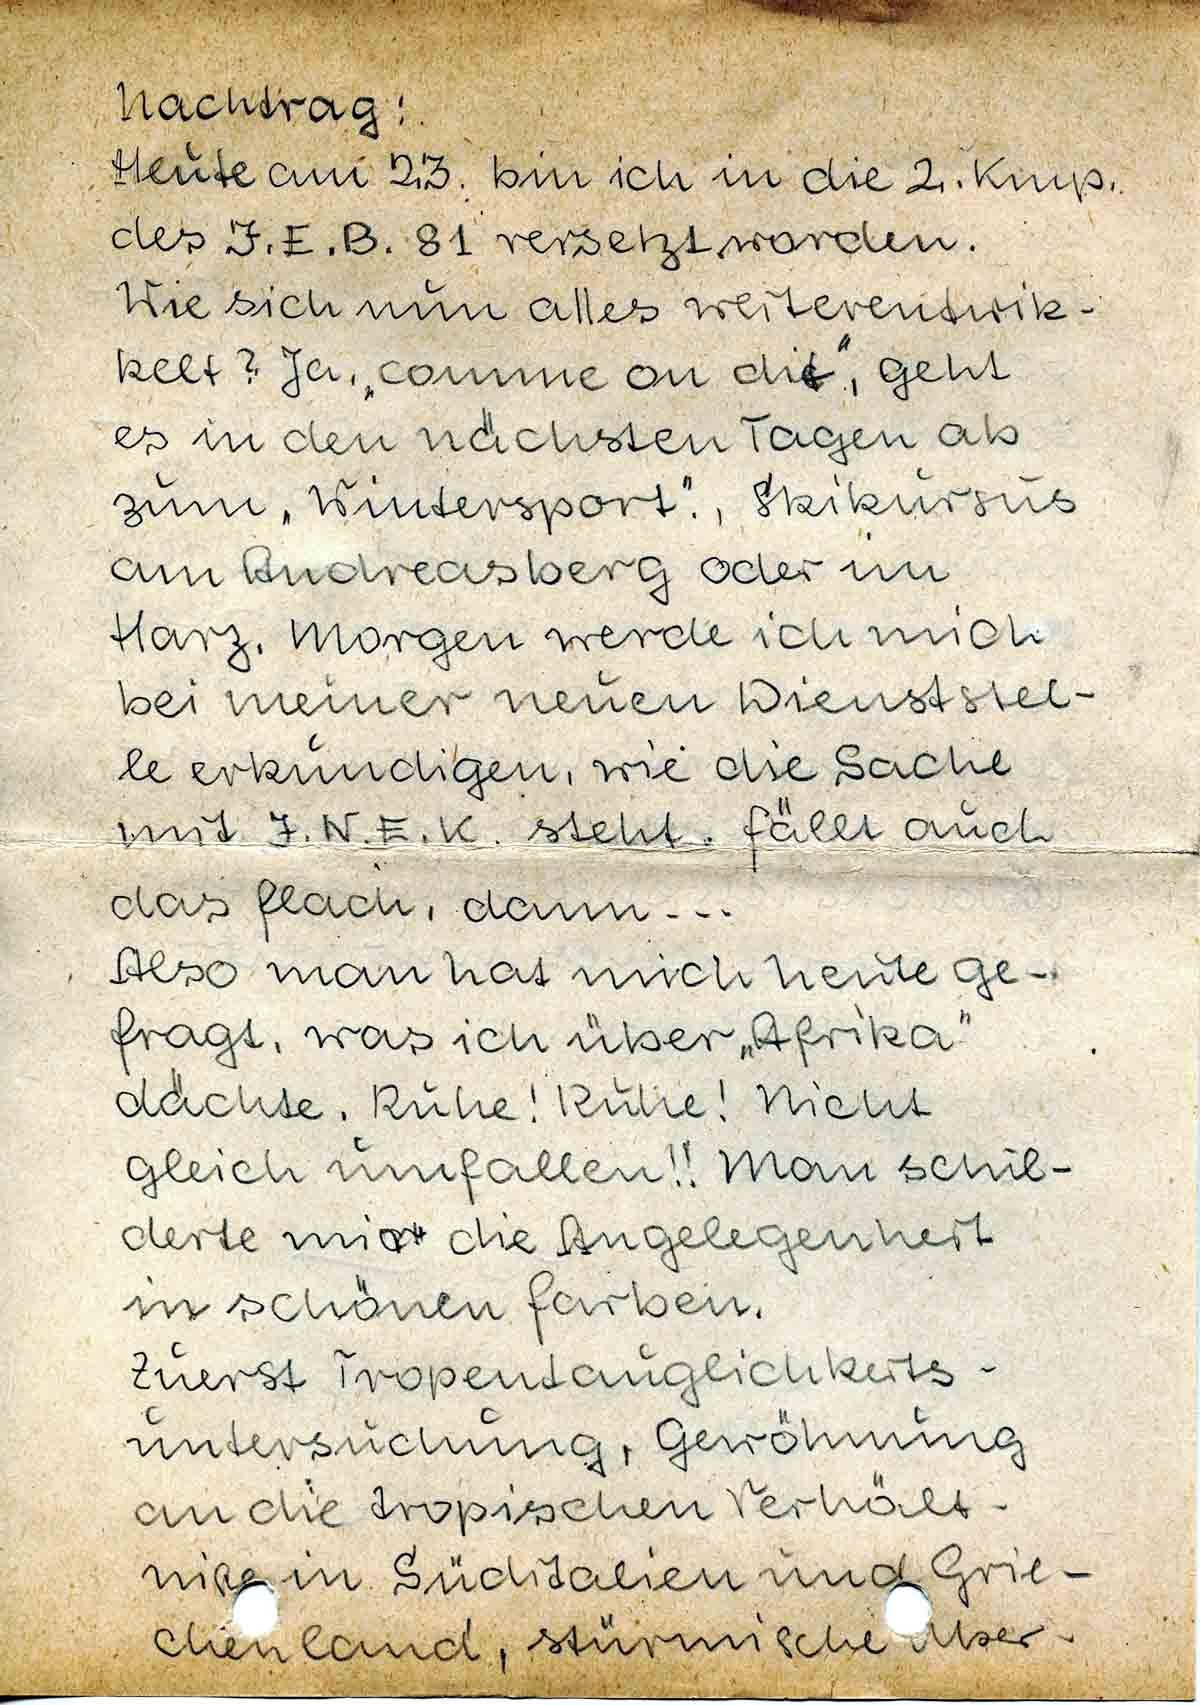 Nachtrag:
Heute am 23. bin ich in die 2. Kmp.
des J.E.B. 81 versetzt worden.
Wie sich nun alles weiterentwik-
kelt? Ja, „comme on dit“, geht
es in den nächsten Tagen ab
zum „Wintersport“, Skikursus
am Andreasberg oder im
Harz. Morgen werde ich mich
bei meiner neuen Dienststel-
le erkundigen, wie die Sache
mit J.N.E.K. steht. fällt auch
das flach, dann...
Also man hat mich heute ge-
fragt, was ich über „Afrika“
dächte. Ruhe! Ruhe! Nicht
gleich umfallen!! Man schil-
derte mir die Angelegenheit
in schönen farben.
Zuerst Tropentauglichkeits-
untersuchung, Gewöhnung
an die tropischen Verhält-
niße in Süditalien und Grie-
chenland, stürmische Über-